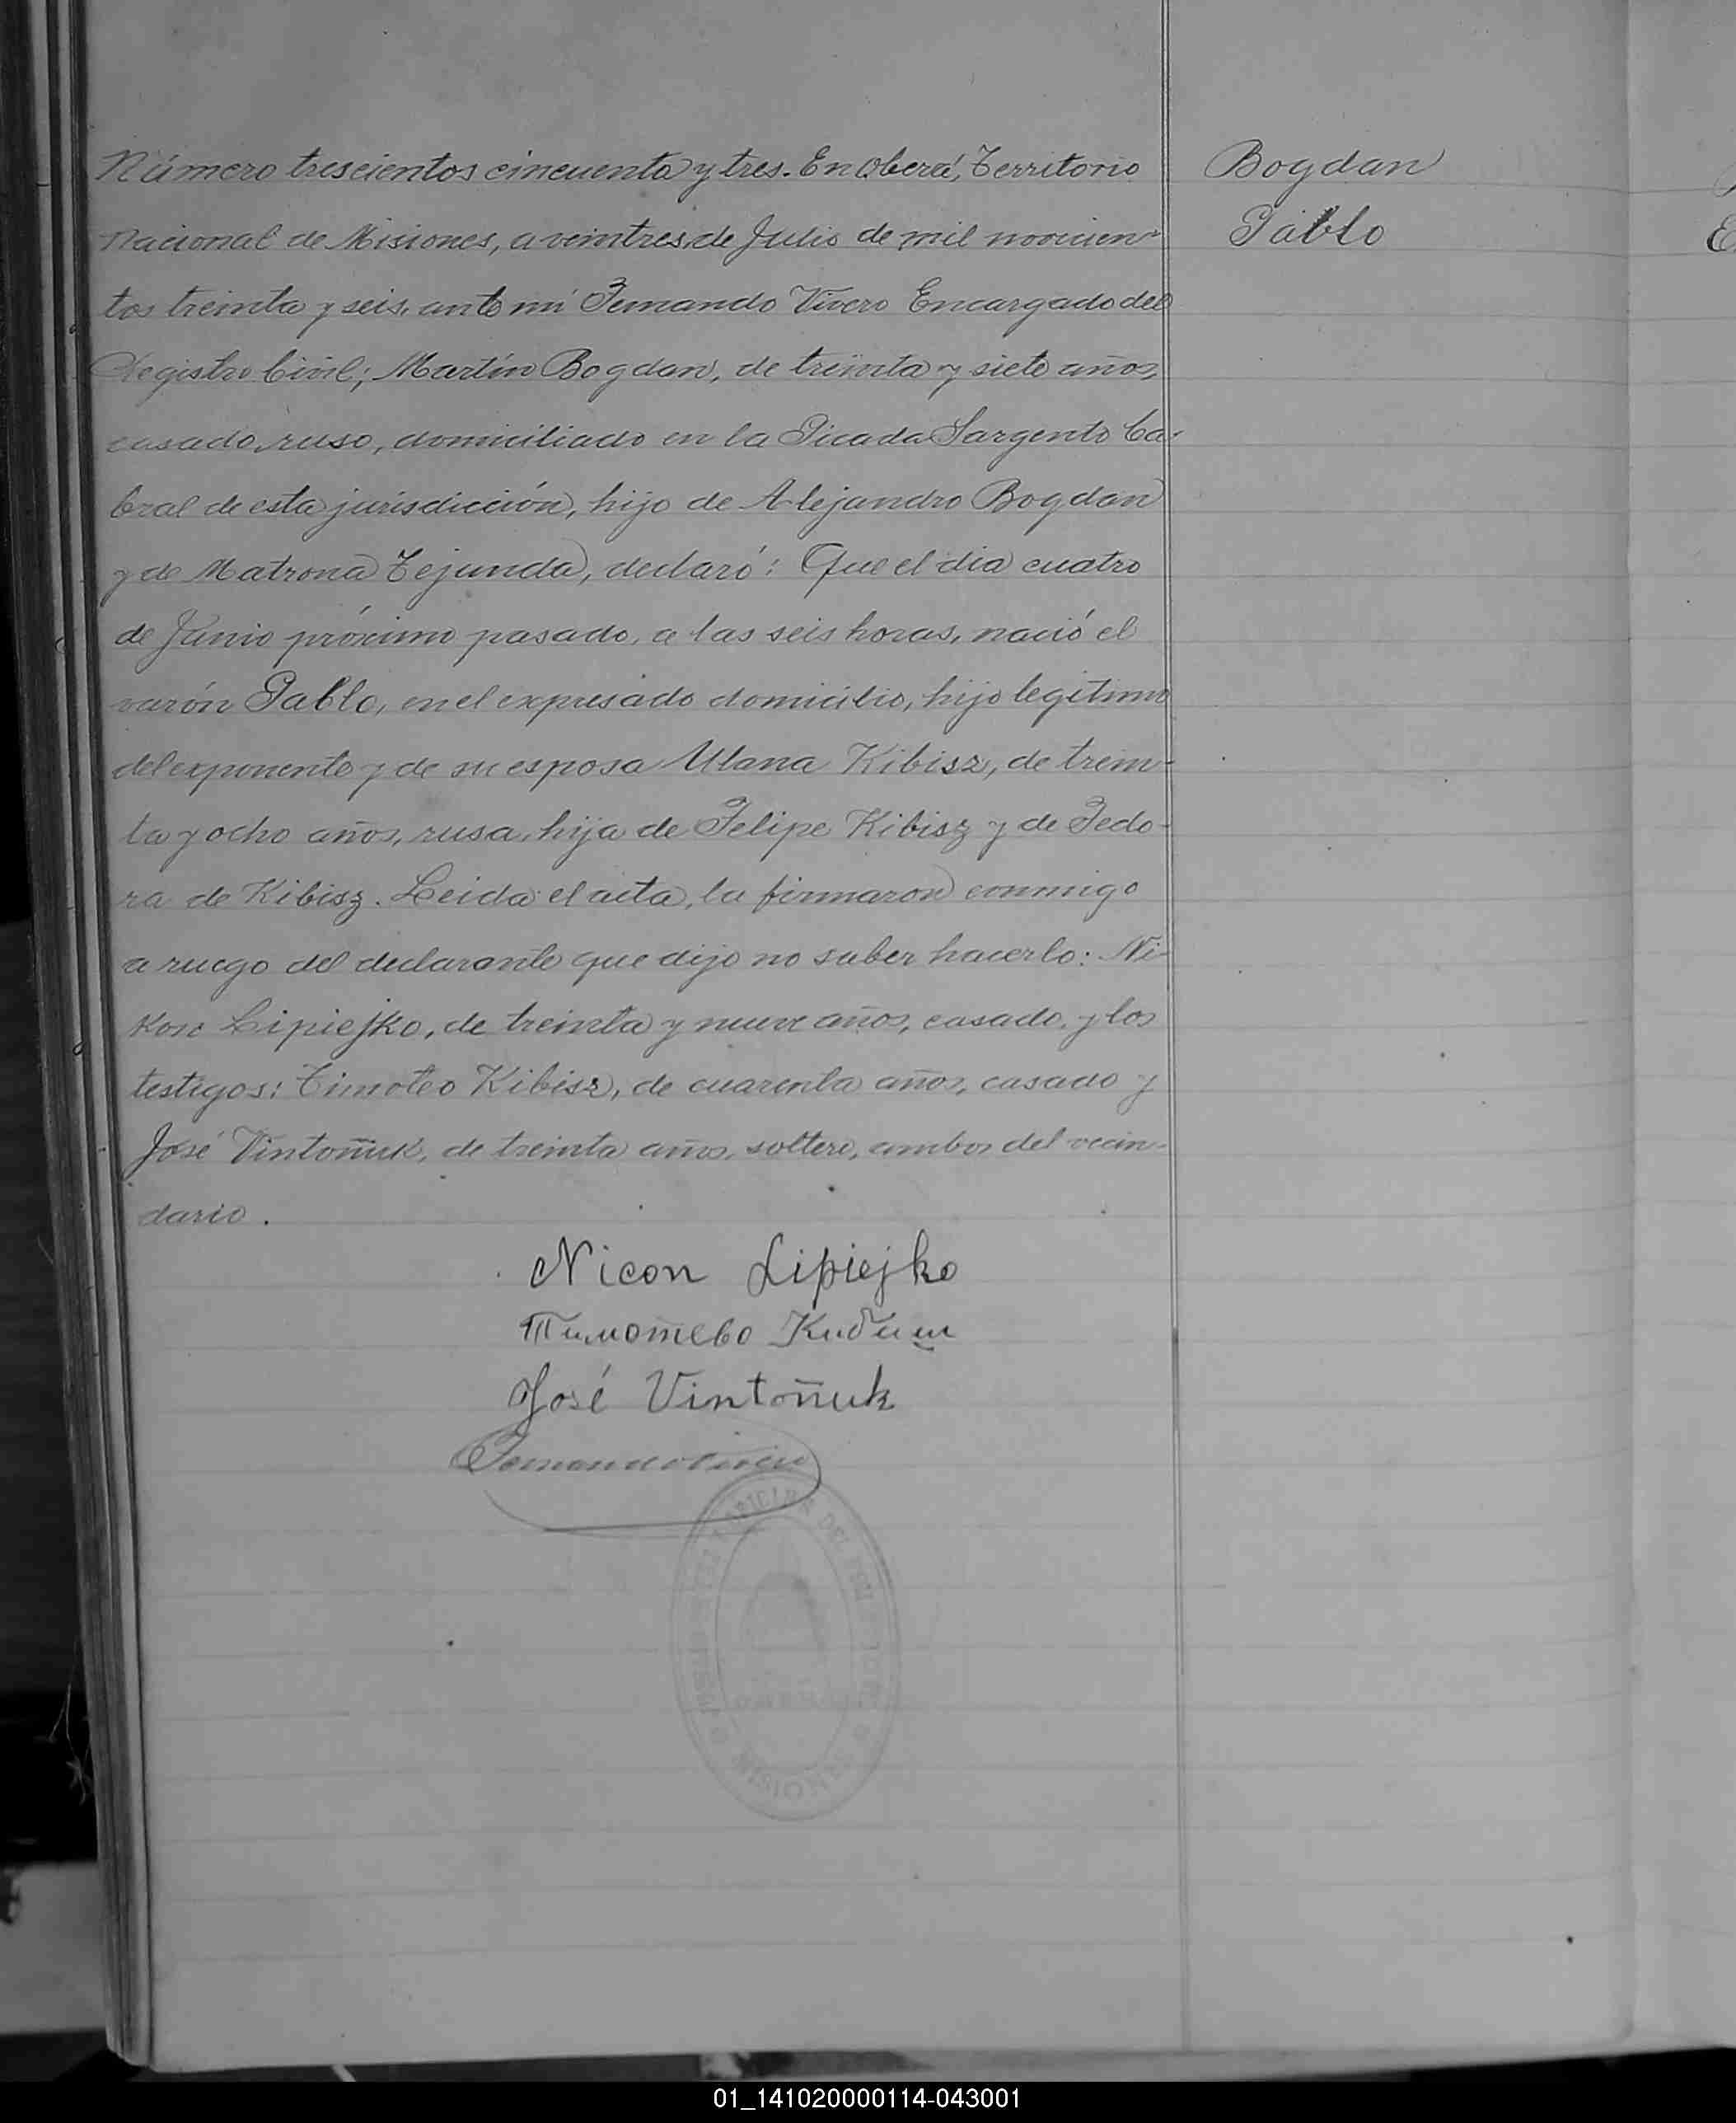 Número trescientos cincuenta y tres. En Oberá, Territorio
Nacional de Misiones, a veintres de Julio de mil novecien-
tos treinta y seis, ante mí Fernando Vivero Encargado del
Registro Civil; Martín Bogdan, de treinta y siete años,
casado, ruso, domiciliado en la Picada Sargento Ca-
bral de esta jurisdicción, hijo de Alejandro Bogdan
y de Matrona Tejunda, declaró: Que el día cuatro
de Junio próximo pasado, a las seis horas, nació el
varón Pablo, en el expresado domicilio, hijo legítimo
del exponente y de su esposa Ulana Kibisz, de trein-
ta y ocho años, rusa, hija de Felipe Kibisz y de Fedo-
ra de Kibisz. Leida el acta, la firmaron conmigo
a ruego del declarante que dijo no saber hacerlo: Ni-
kon Lipiejko, de treinta y nueve años, casado, y los
testigos: Timoteo Kibisz, de cuarenta años, casado y
José Vintoñuk, de treinta años, soltero, ambos del vecin-
dario.
Nicon Lipiejko
Тимотево Кибиш
José Vintoñuk
Fernando Vivero
Bogdan
Pablo
01_141020000114-043001